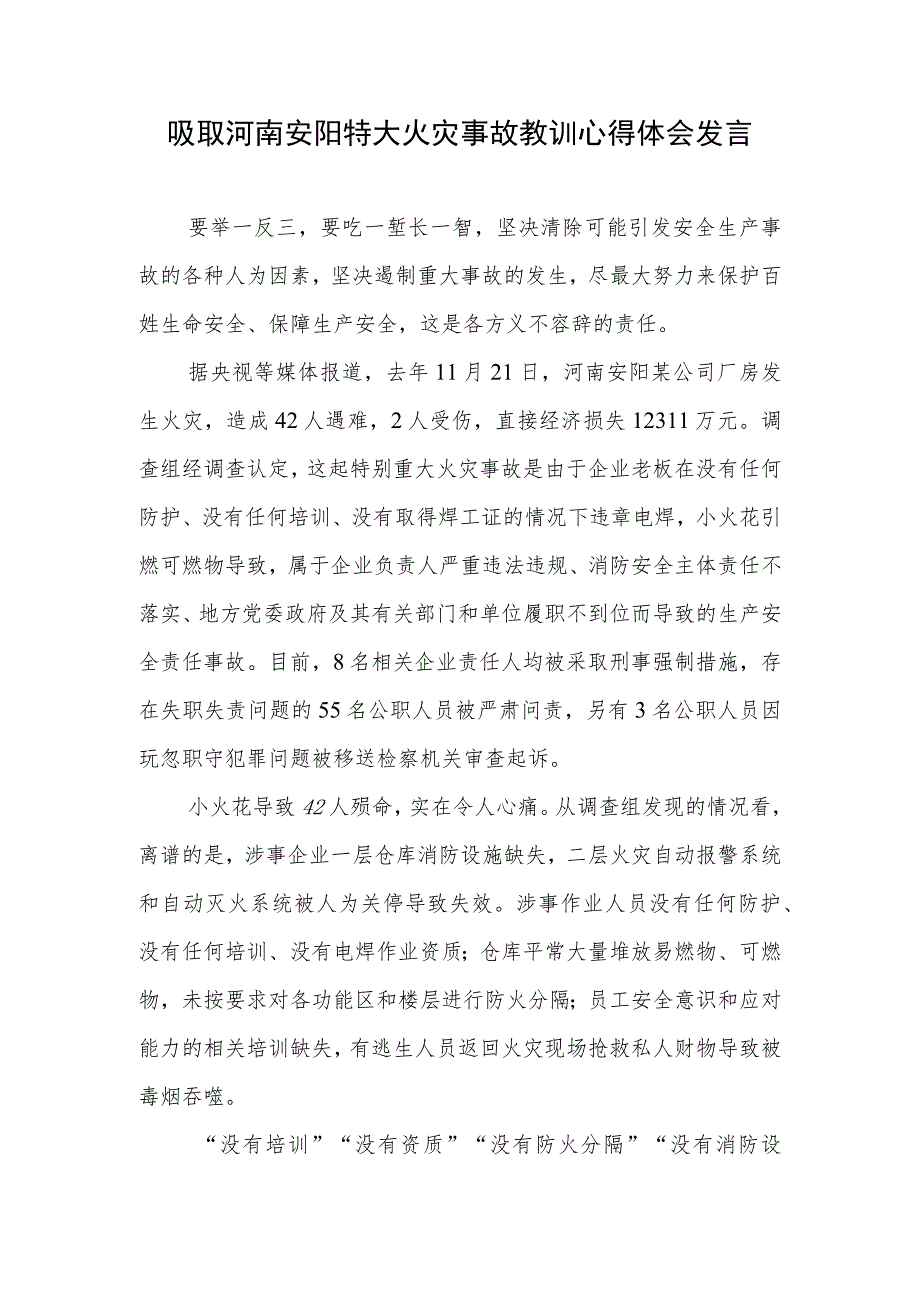 吸取河南安阳特大火灾事故教训心得体会发言
要举一反三，要吃一堑长一智，坚决清除可能引发安全生产事
故的各种人为因素，坚决遏制重大事故的发生，尽最大努力来保护百
姓生命安全、保障生产安全，这是各方义不容辞的责任。
据央视等媒体报道，去年 11 月 21 日，河南安阳某公司厂房发
生火灾，造成 42 人遇难，2 人受伤，直接经济损失 12311 万元。调
查组经调查认定，这起特别重大火灾事故是由于企业老板在没有任何
防护、没有任何培训、没有取得焊工证的情况下违章电焊，小火花引
燃可燃物导致，属于企业负责人严重违法违规、消防安全主体责任不
落实、地方党委政府及其有关部门和单位履职不到位而导致的生产安
全责任事故。目前，8 名相关企业责任人均被采取刑事强制措施，存
在失职失责问题的 55 名公职人员被严肃问责，另有 3 名公职人员因
玩忽职守犯罪问题被移送检察机关审查起诉。
小火花导致 42 人殒命，实在令人心痛。从调查组发现的情况看，
离谱的是，涉事企业一层仓库消防设施缺失，二层火灾自动报警系统
和自动灭火系统被人为关停导致失效。涉事作业人员没有任何防护、
没有任何培训、没有电焊作业资质；仓库平常大量堆放易燃物、可燃
物，未按要求对各功能区和楼层进行防火分隔；员工安全意识和应对
能力的相关培训缺失，有逃生人员返回火灾现场抢救私人财物导致被
毒烟吞噬。
“没有培训”“没有资质”“没有防火分隔”“没有消防设